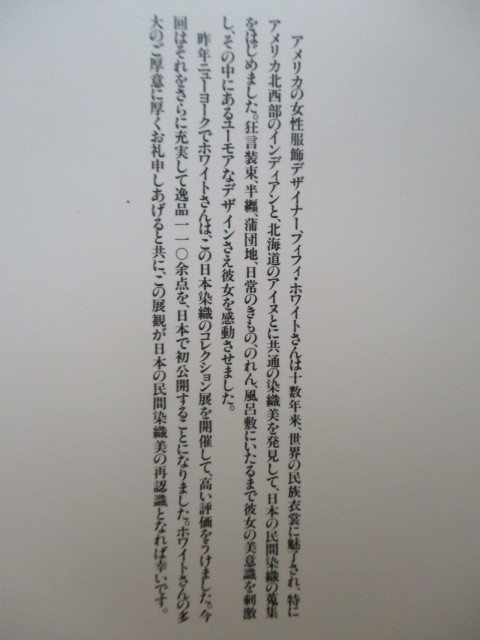 アメリカの女性服飾デザイナー、フィフィ・ホワイトさんは十数年来、世界の民族衣裳に魅了され、特に
アメリカ北西部のインディアンと、北海道のアイヌとに共通の染織美を発見して、日本の民間染織の蒐集
をはじめました。狂言装束、半纏、蒲団地、日常のきもの、のれん、風呂敷にいたるまで彼女の美意識を刺激
し、その中にあるユーモアなデザインさえ彼女を感動させました。
昨年ニューヨークでホワイトさんは、この日本染織のコレクション展を開催して、高い評価をうけました。今
回はそれをさらに充実して逸品一一〇余点を、日本で初公開することになりました。ホワイトさんの多
大のご厚意に厚くお礼申しあげると共に、この展観が日本の民間染織美の再認識となれば幸いです。